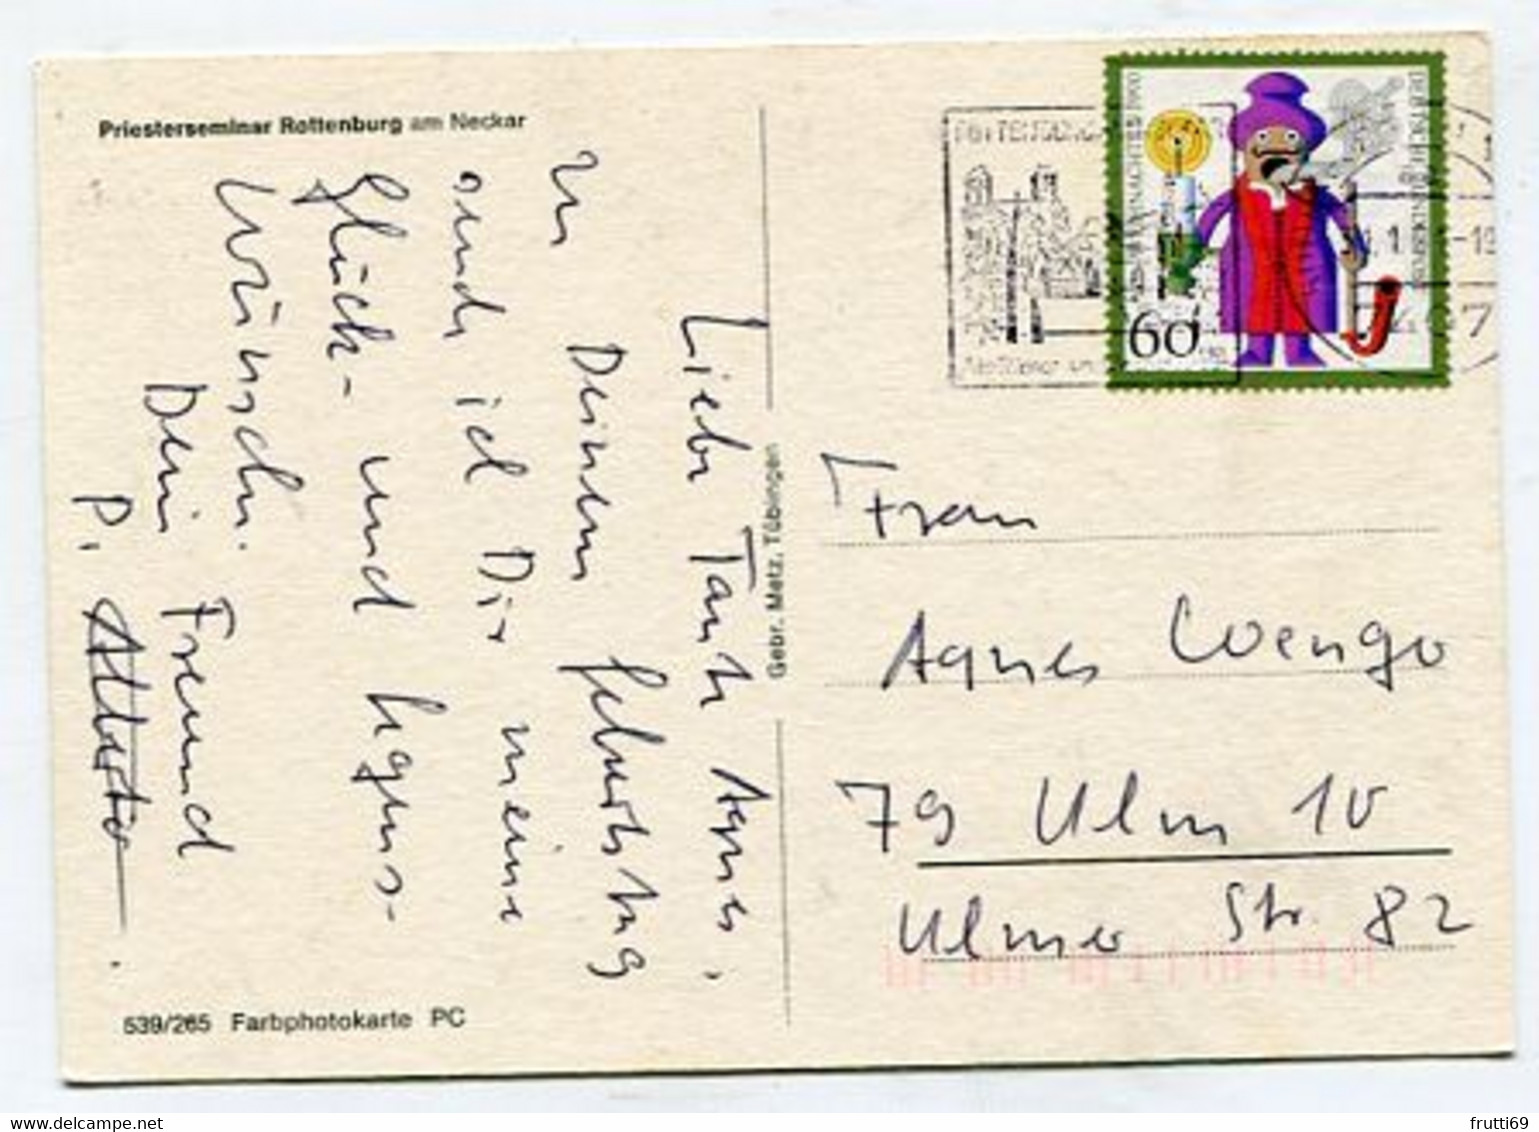 Priesterseminar Rottenburg am Neckar
Liebe Tante Agnes,
zu Deinem Geburtstag
sende ich Dir meine
Glück- und Segens-
wünsche.
Dein Freund
P.
539/265 Farbphotokarte PC
Gebr. Metz, Tübingen
DEUTSCHE BUNDESPOST
WEIHNACHTEN 1990
60
Frau
Agnes
79 Ulm 10
Ulmer Str. 82
frutti69